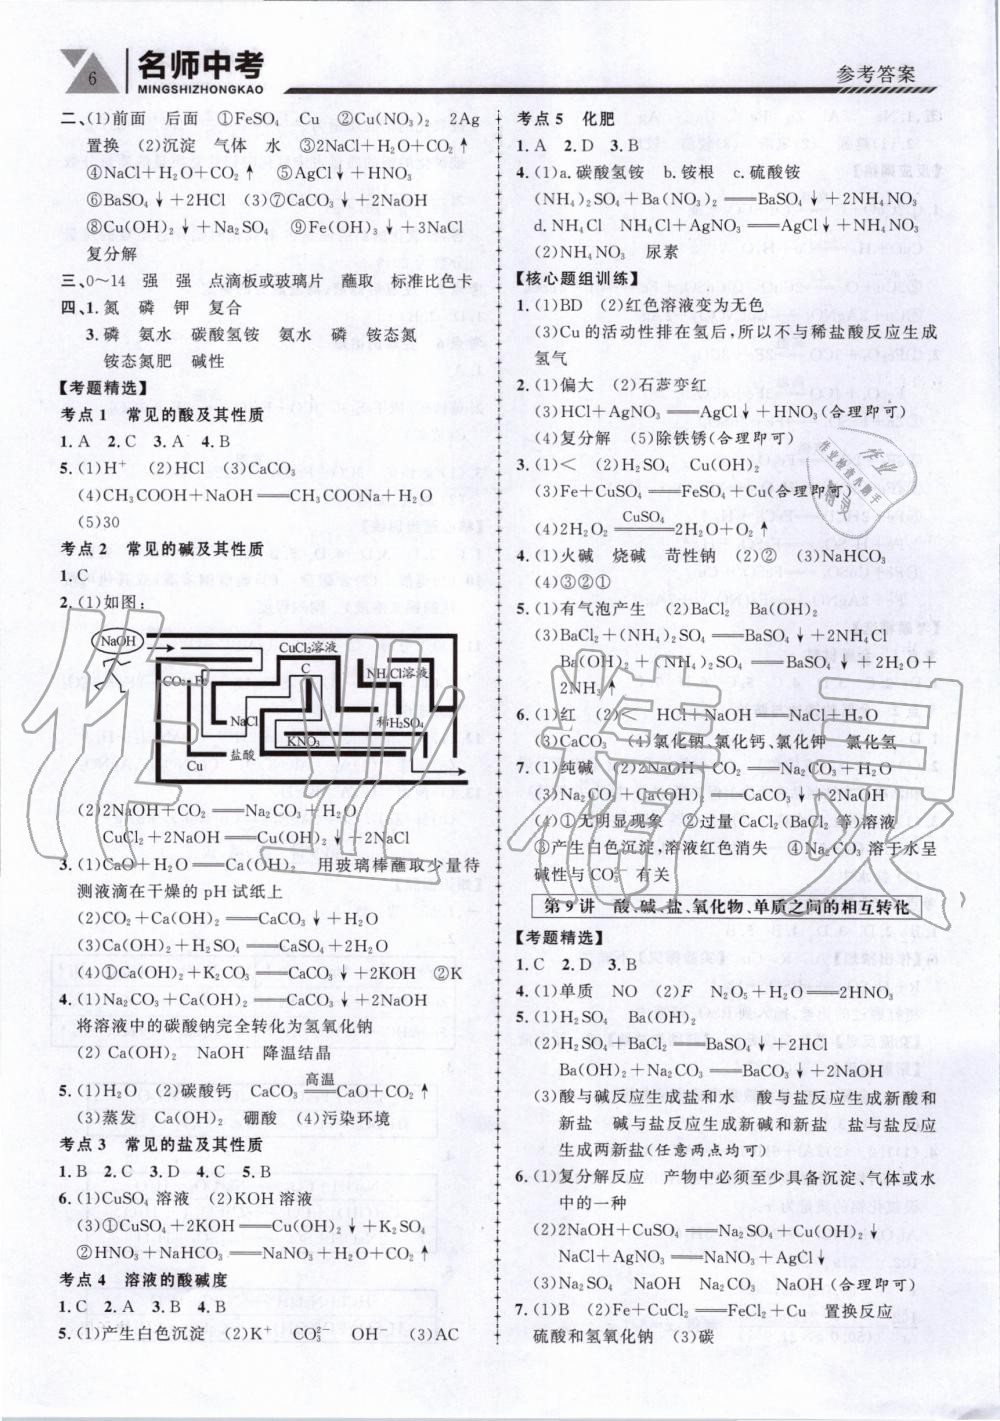 6
名师中考
MINGSHIZHONGKAO
参考答案
二、(1)前面　后面　①FeSO₄　Cu　②Cu(NO₃)₂　2Ag
置换　(2)沉淀　气体　水　③2NaCl+H₂O+CO₂↑
④NaCl+H₂O+CO₂↑　⑤AgCl↓+HNO₃
⑥BaSO₄↓+2HCl　(3)⑦CaCO₃↓+2NaOH
⑧Cu(OH)₂↓+Na₂SO₄　⑨Fe(OH)₃↓+3NaCl
复分解
三、0～14　强　强　点滴板或玻璃片　蘸取　标准比色卡
四、1.氮　磷　钾　复合
3.磷　氨水　碳酸氢铵　氨水　磷　铵态氮
铵态氮肥　碱性
【考题精选】
考点 1　常见的酸及其性质
1.A　2.C　3.A　4.B
5.(1)H⁺　(2)HCl　(3)CaCO₃
(4)CH₃COOH+NaOH══CH₃COONa+H₂O
(5)30
考点 2　常见的碱及其性质
1.C
2.(1)如图:
NaOH
CuCl₂溶液
CO₂
Fe
C
NH₄Cl溶液
NaCl
稀H₂SO₄
盐酸
KNO₃
Cu
(2)2NaOH+CO₂══Na₂CO₃+H₂O
CuCl₂+2NaOH══Cu(OH)₂↓+2NaCl
3.(1)CaO+H₂O══Ca(OH)₂　用玻璃棒蘸取少量待
测液滴在干燥的 pH 试纸上
(2)CO₂+Ca(OH)₂══CaCO₃↓+H₂O
(3)Ca(OH)₂+H₂SO₄══CaSO₄+2H₂O
(4)①Ca(OH)₂+K₂CO₃══CaCO₃↓+2KOH　②K
4.(1)Na₂CO₃+Ca(OH)₂══CaCO₃↓+2NaOH
将溶液中的碳酸钠完全转化为氢氧化钠
(2) Ca(OH)₂　NaOH　降温结晶
5.(1)H₂O　(2)碳酸钙　CaCO₃ 高温══ CaO+CO₂↑
(3)蒸发　Ca(OH)₂　硼酸　(4)污染环境
考点 3　常见的盐及其性质
1.B　2.C　3.D　4.C　5.B
6.(1)CuSO₄ 溶液　(2)KOH 溶液
(3)①CuSO₄+2KOH══Cu(OH)₂↓+K₂SO₄
②HNO₃+NaHCO₃══NaNO₃+H₂O+CO₂↑
考点 4　溶液的酸碱度
1.C　2.A　3.B　4.B
5.(1)产生白色沉淀　(2)K⁺　CO₃²⁻　OH⁻　(3)AC
考点 5　化肥
1.A　2.D　3.B
4.(1)a.碳酸氢铵　b.铵根　c.硫酸铵
(NH₄)₂SO₄+Ba(NO₃)₂══BaSO₄↓+2NH₄NO₃
d.NH₄Cl　NH₄Cl+AgNO₃══AgCl↓+NH₄NO₃
(2)NH₄NO₃　尿素
【核心题组训练】
1.(1)BD　(2)红色溶液变为无色
(3)Cu 的活动性排在氢后,所以不与稀盐酸反应生成
氢气
2.(1)偏大　(2)石蕊变红
(3)HCl+AgNO₃══AgCl↓+HNO₃(合理即可)
(4)复分解　(5)除铁锈(合理即可)
3.(1)<　(2)H₂SO₄　Cu(OH)₂
(3)Fe+CuSO₄══FeSO₄+Cu(合理即可)
(4)2H₂O₂ CuSO₄══ 2H₂O+O₂↑
4.(1)火碱　烧碱　苛性钠　(2)②　(3)NaHCO₃
(4)③②①
5.(1)有气泡产生　(2)BaCl₂　Ba(OH)₂
(3)BaCl₂+(NH₄)₂SO₄══BaSO₄↓+2NH₄Cl
Ba(OH)₂+(NH₄)₂SO₄══BaSO₄↓+2H₂O+
2NH₃↑
6.(1)红　(2)<　HCl+NaOH══NaCl+H₂O
(3)CaCO₃　(4)氯化钠、氯化钙、氯化钾　氯化氢
7.(1)纯碱　(2)2NaOH+CO₂══Na₂CO₃+H₂O
(3)Na₂CO₃+Ca(OH)₂══CaCO₃↓+2NaOH
(4)①无明显现象　②过量 CaCl₂(BaCl₂ 等)溶液
③产生白色沉淀,溶液红色消失　④Na₂CO₃ 溶于水呈
碱性与 CO₃²⁻ 有关
第 9 讲　酸、碱、盐、氧化物、单质之间的相互转化
【考题精选】
1.C　2.D　3.B
4.(1)单质　NO　(2)F　N₂O₅+H₂O══2HNO₃
5.(1)H₂SO₄　Ba(OH)₂
(2)H₂SO₄+BaCl₂══BaSO₄↓+2HCl
Ba(OH)₂+Na₂CO₃══BaCO₃↓+2NaOH
(3)酸与碱反应生成盐和水　酸与盐反应生成新酸和
新盐　碱与盐反应生成新碱和新盐　盐与盐反应
生成两新盐(任意两点均可)
6.(1)复分解反应　产物中必须至少具备沉淀、气体或水
中的一种
(2)2NaOH+CuSO₄══Na₂SO₄+Cu(OH)₂↓
NaCl+AgNO₃══NaNO₃+AgCl↓
(3)Na₂SO₄　NaOH　Na₂CO₃　NaOH(合理即可)
7.(1)B　(2)Fe+CuCl₂══FeCl₂+Cu　置换反应
硫酸和氢氧化钠　(3)碳